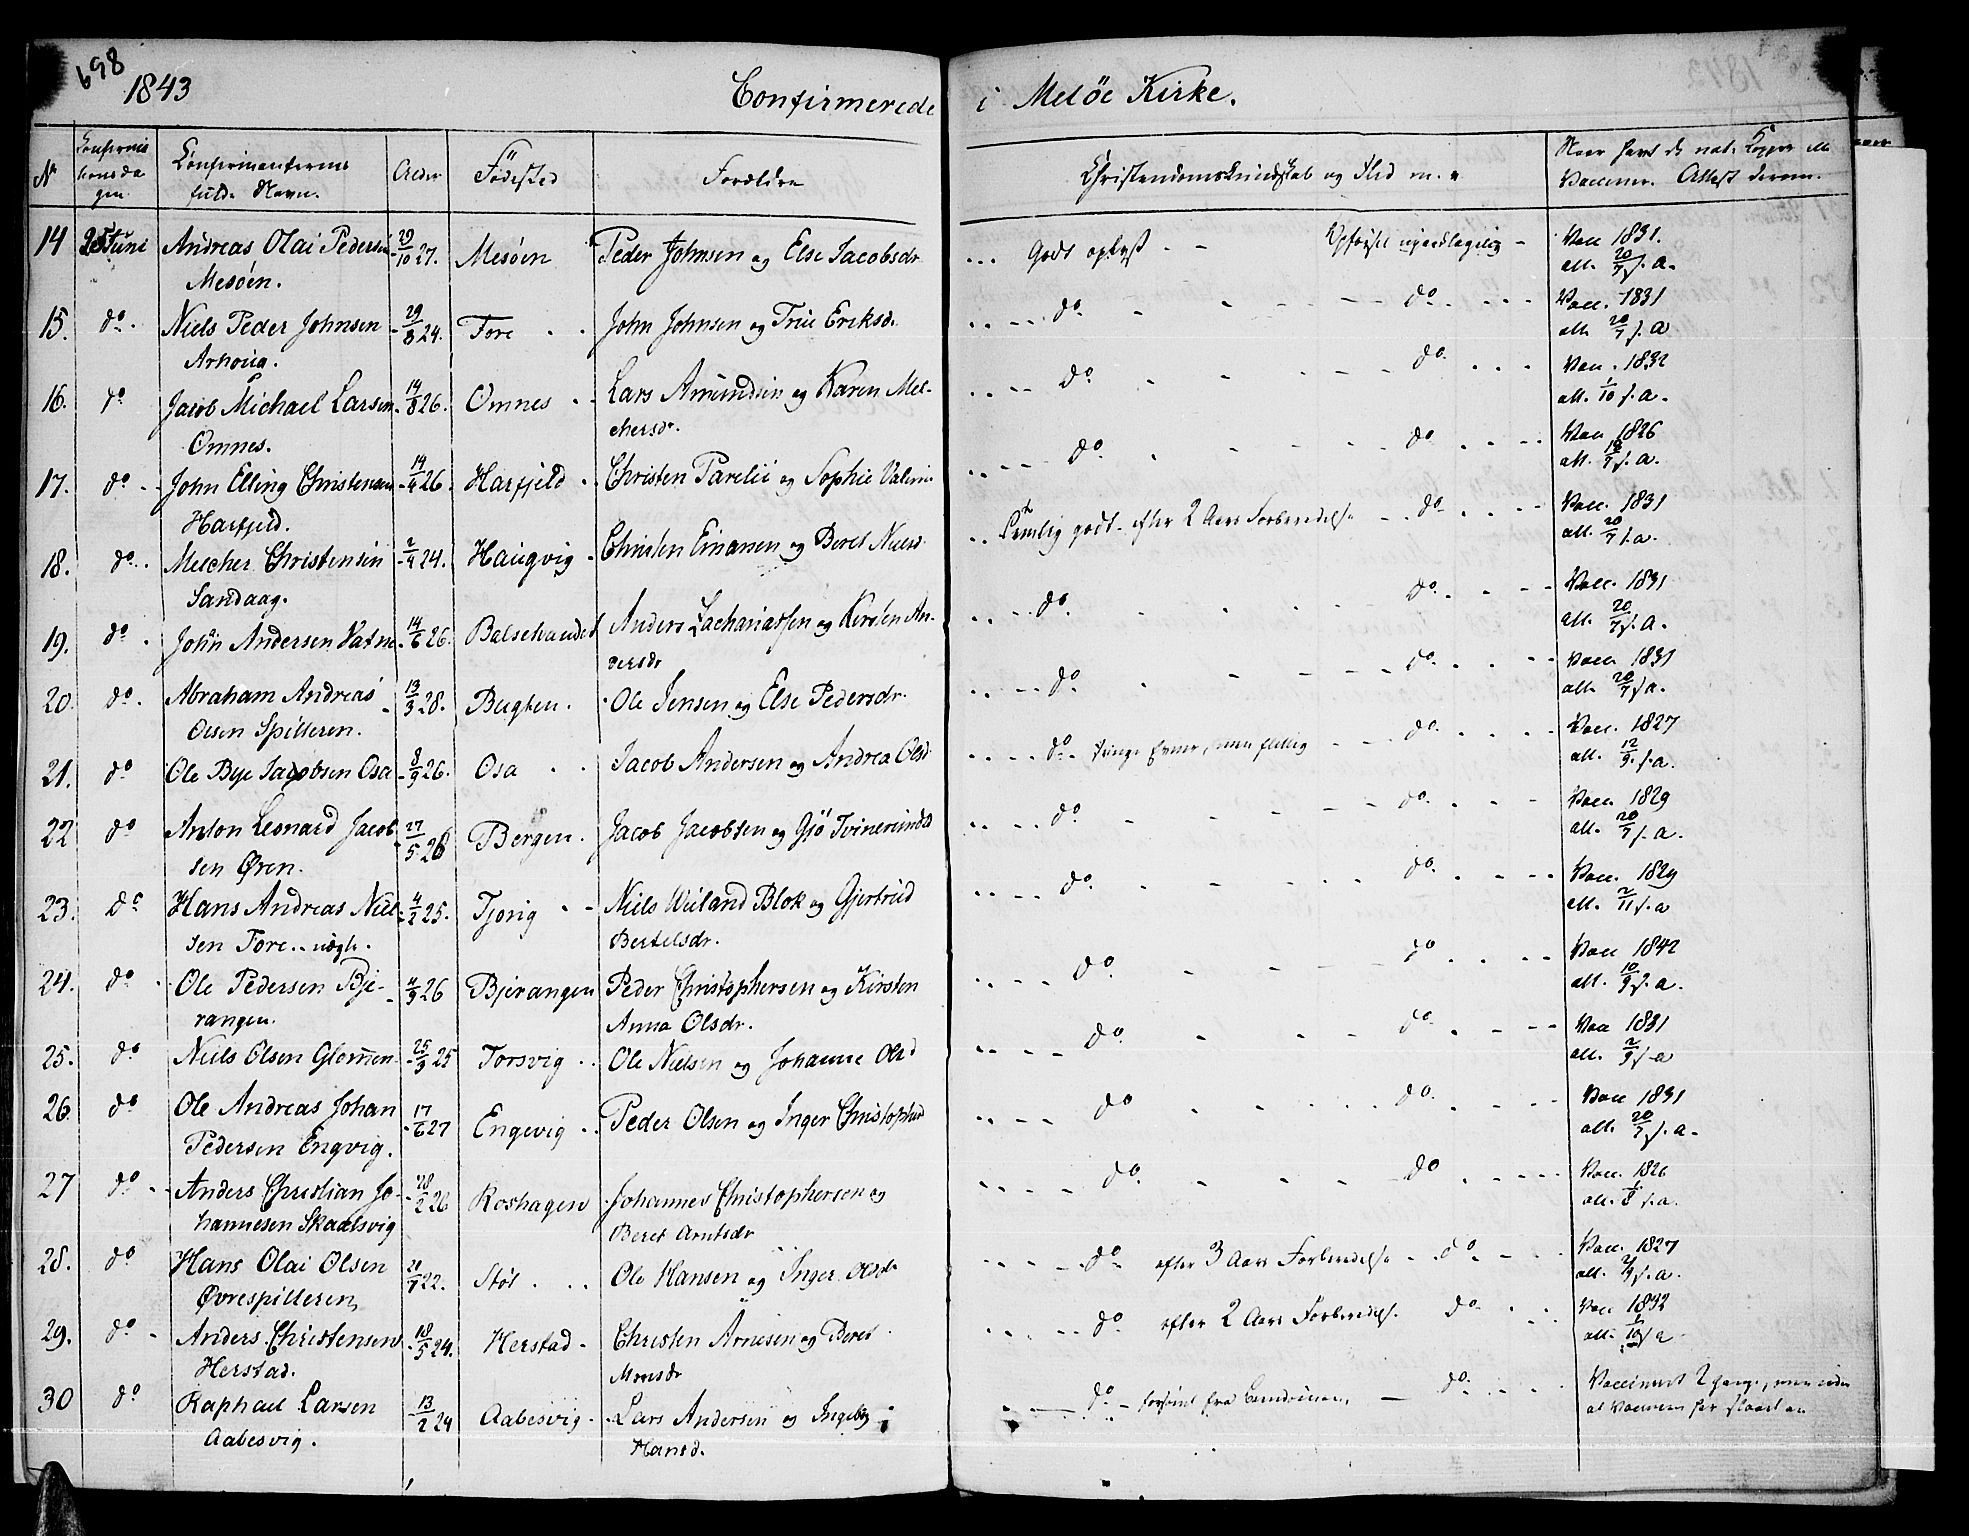 698
1843 Confirmerede i Melöe Kirke.
Nr Confirmationsdagen Confirmanternes fulde Navn. Alder Födested Forældre Christendomskundskab og Flid m. v. Naar havt de nat. Kopper ell. Vaccinen. Attest derom.
14 25 Juni Andreas Olai Pedersen 29/10 27. Mesöen Peder Johnsen og Else Jacobsdr. Godt oplyst - - Opförsel ujevnlig - Vac 1831.
Mesöen. att. 20/7 s. a.
15. do. Niels Peder Johnsen 29/8 24. Fore John Johnsen og Erichsd. do. do. Vac. 1831
Arhoug. att. 20/7 s. a
16. do Jacob Michael Larsen 14/8 26. Omnes Lars Amundsen og Karen Mel- do. do. Vac. 1832
Omnes. chersdr. att. 1/10 s. a.
17. do. John Elling Christensen 14/4 26. Harfjeld Christen Parelii og Sophie do. do Vac. 1826
Harfjeld. att. 12/9 s. a.
18. do. Melcher Christensen 2/4 24. Haugvig Christen Einarsen og Beret Nielsd. Temlig godt efter 2 Aars Forberedelse do. Vac. 1831
Sandaag. att. 20/7 s. a.
19. do. John Andersen Vatne 14/6 26. Anders Zachariassen og Kirsten An- do. do. Vac. 1831
dersdr att. 20/7 s. a.
20. do. Abraham Andreas 13/3 28. Bugten. Ole Jensen og Else Pedersdr. do. do. Vac. 1831
Olsen Spilderen. att. 20/7 s. a.
21. do Ole Bye Jacobsen Osa 8/9 26. Osa Jacob Andersen og Andrea Olsd. do. tunge Evner, men flittig do. Vac. 1827
att. 12/9 s. a.
22 do Anton Leonard Jacob 27/5 28 Bergen. Jacob Jacobsen og Gjö do do. Vac. 1829
sen Øren. att. 20/7 s. a.
23. do Hans Andreas Niel- 4/2 25. Tjorig Niels Weiland Blok og Gjertrud do. do. Vac. 1829
sen Fore. uægte. Bertelsdr. att. 2/11 s. a
24. do Ole Pedersen Bje- 4/9 26 Bjerangen Peder Christophersen og Kirsten do. do Vac 1842
rangen. Anna Olsdr. att. 10/9 s. a.
25. do Niels Olsen Glommen 25/3 25 Torsvig Ole Nielsen og Johanne Olsd do. do. Vac 1831
att. 2/9 s. a
26. do Ole Andreas Johan 17/6 27 Engevig Peder Olsen og Inger Christophsd do do. Vac 1831
Pedersen Engvig. att. 20/7 s. a.
27 do Anders Christian Jo- 28/2 26 Roshagen Johannes Christophersen og do. do Vac. 1826
hannesen Skaalsvig Beret Arntsdr att. s. a.
28. do Hans Olai Olsen 20/7 22. Støt Ole Hansen og Inger Olsdr do efter 3 Aars Forberedelse do. Vac. 1827
Øvrespilleren att. s. a.
29. do. Anders Christensen 18/5 24. Herstad Christen Arnesen og Beret do efter 2 Aars Forberedelse. do. Vac 1832
Herstad. Monsdr att. 1/10 s. a
30 do Raphael Larsen 13/2 24 Aabesvig Lars Andersen og Ingeb. do. do. Vaccineret 2 gange, men uden
Aabesvig. Hansd. at Vaccinen har slaaet an